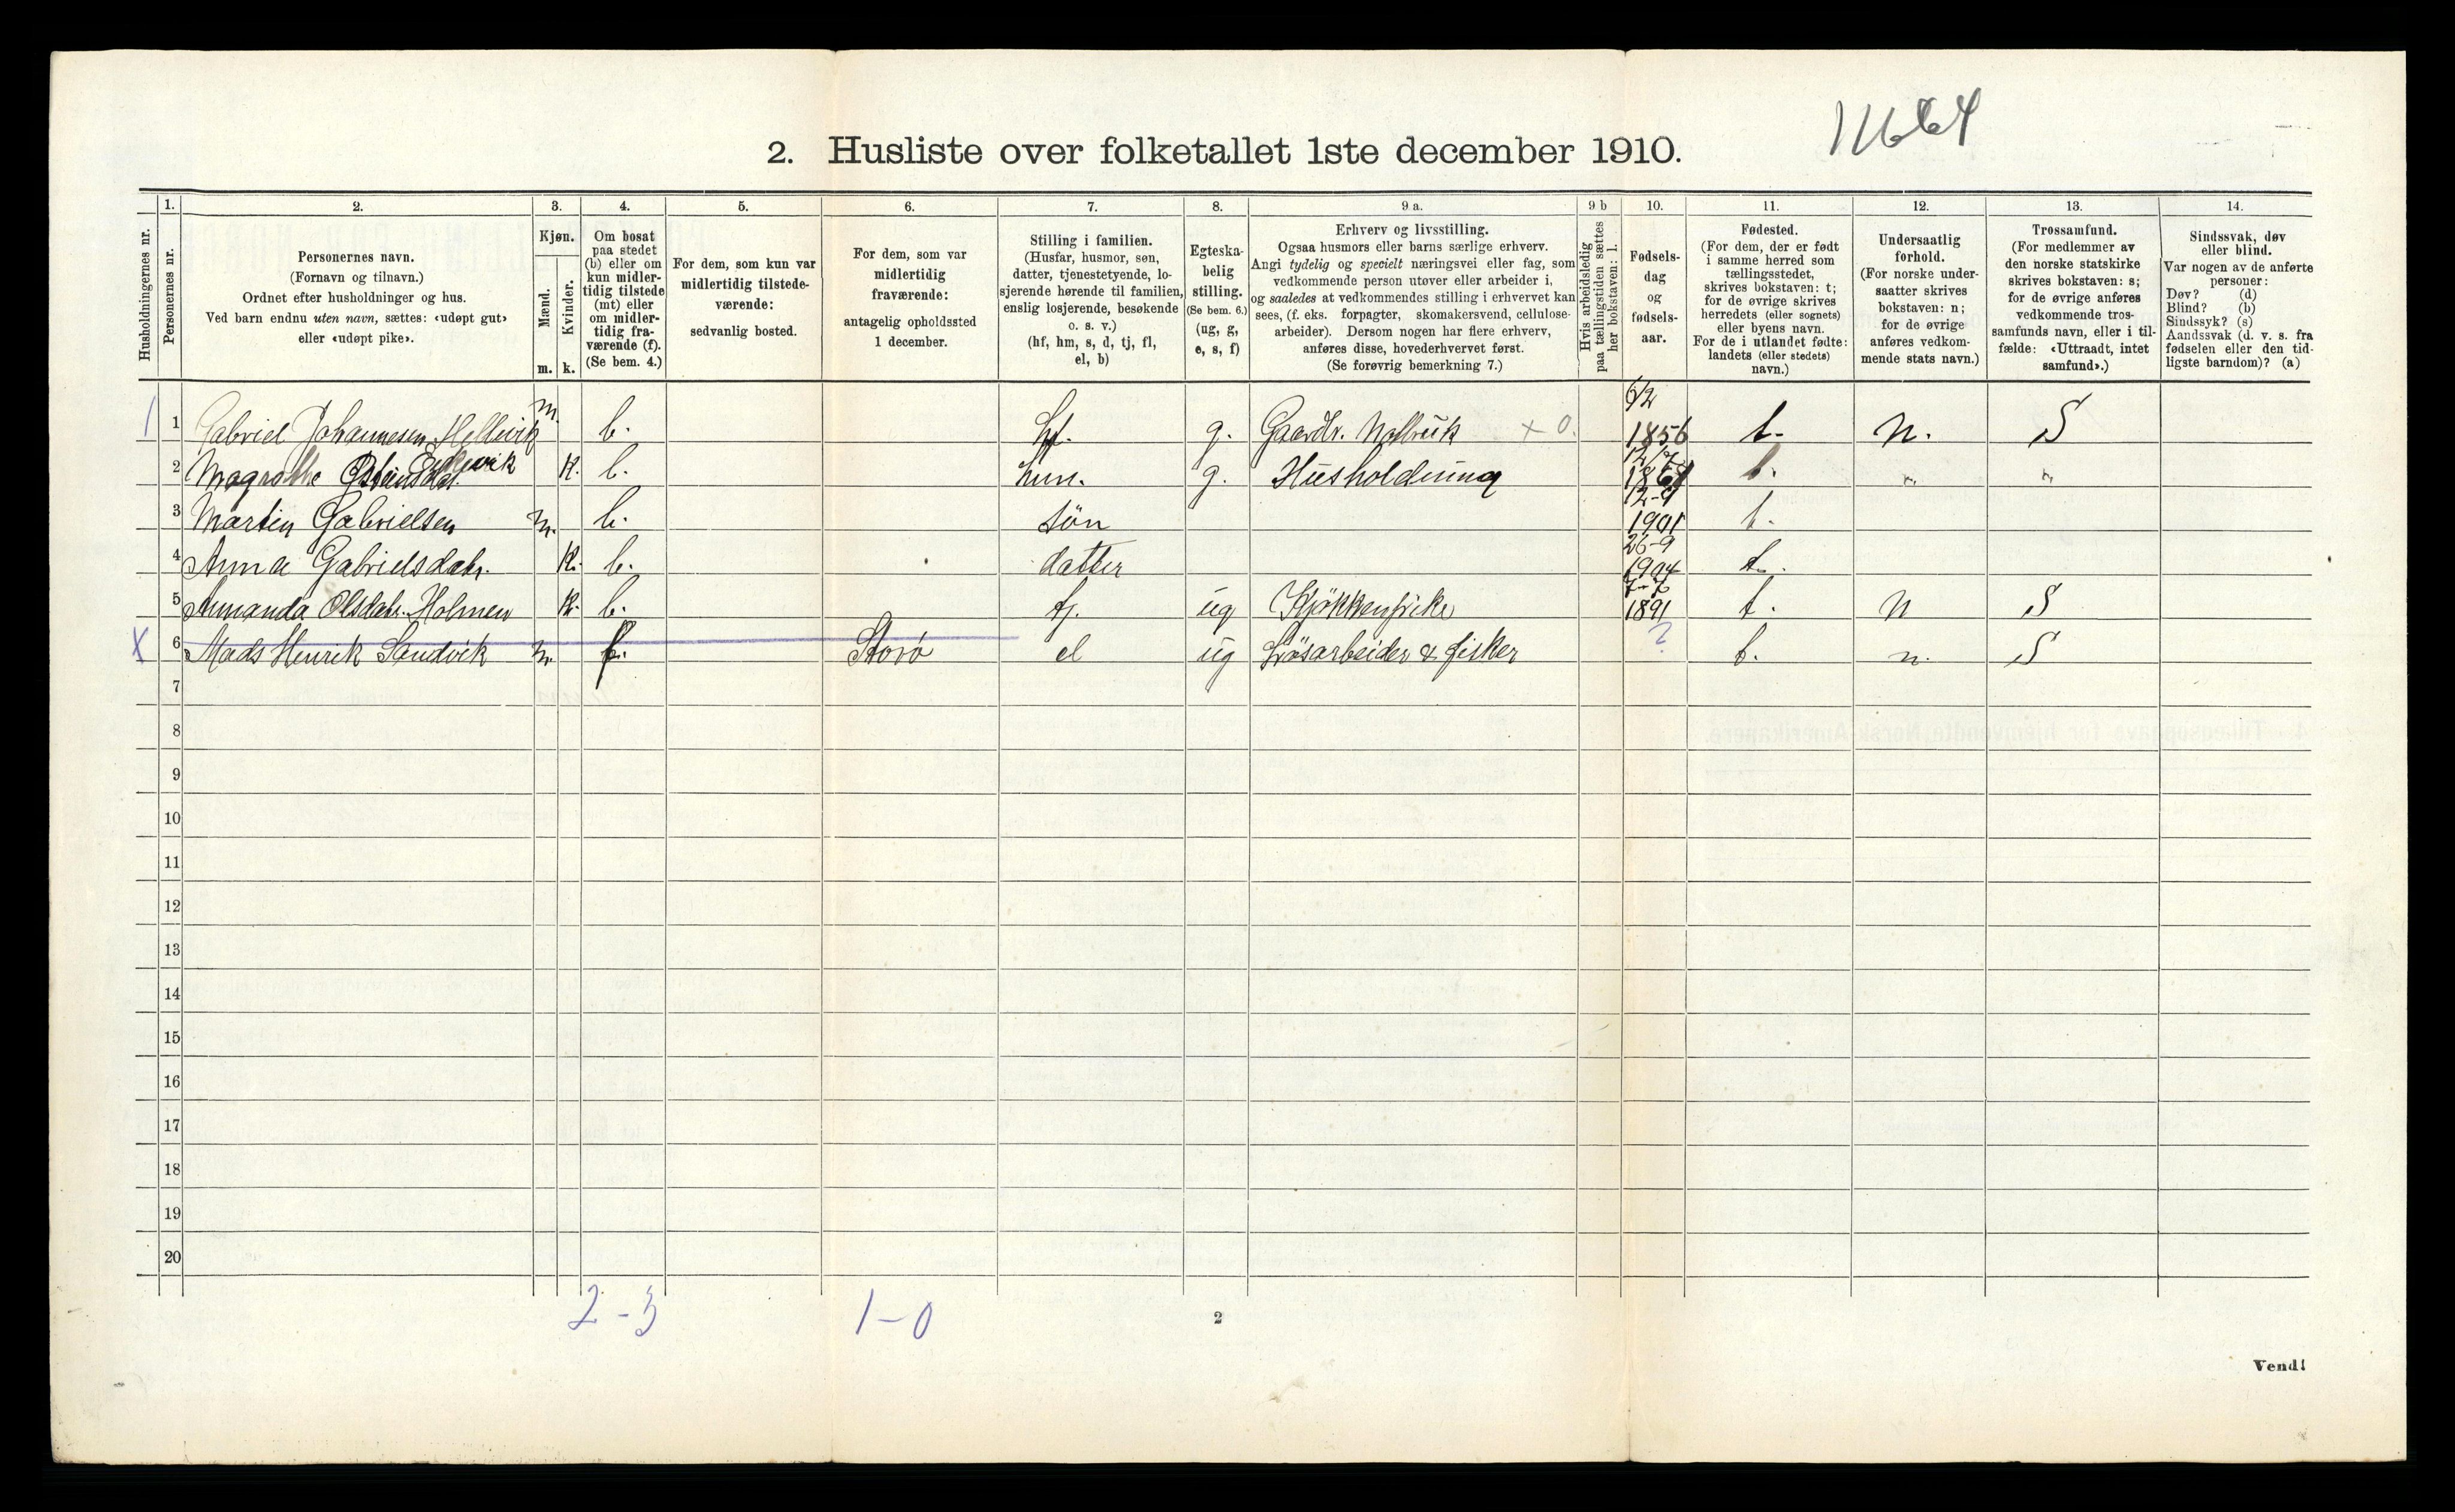 11664
2. Husliste over folketallet 1ste december 1910.
Husholdningernes nr.
1.
Personernes nr.
2.
Personernes navn.
(Fornavn og tilnavn.)
Ordnet efter husholdninger og hus.
Ved barn endnu uten navn, sættes: «udøpt gut»
eller «udøpt pike».
3.
Kjøn.
Mænd.
Kvinder.
m. k.
4.
Om bosat
paa stedet
(b) eller om
kun midler-
tidig tilstede
(mt) eller
om midler-
tidig fra-
værende (f).
(Se bem. 4.)
5.
For dem, som kun var
midlertidig tilstede-
værende:
sedvanlig bosted.
6.
For dem, som var
midlertidig
fraværende:
antagelig opholdssted
1 december.
7.
Stilling i familien.
(Husfar, husmor, søn,
datter, tjenestetyende, lo-
sjerende hørende til familien,
enslig losjerende, besøkende
o. s. v.)
(hf, hm, s, d, tj, fl,
el, b)
8.
Egteska-
belig
stilling.
(Se bem. 6.)
(ug, g,
e, s, f)
9 a.
Erhverv og livsstilling.
Ogsaa husmors eller barns særlige erhverv.
Angi tydelig og specielt næringsvei eller fag, som
vedkommende person utøver eller arbeider i,
og saaledes at vedkommendes stilling i erhvervet kan
sees, (f. eks. forpagter, skomakersvend, cellulose-
arbeider). Dersom nogen har flere erhverv,
anføres disse, hovederhvervet først.
(Se forøvrig bemerkning 7.)
9 b
Hvis arbeidsledig
paa tællingstiden sættes
her bokstaven: l.
10.
Fødsels-
dag
og
fødsels-
aar.
11.
Fødested.
(For dem, der er født
i samme herred som
tællingsstedet,
skrives bokstaven: t;
for de øvrige skrives
herredets (eller sognets)
eller byens navn.
For de i utlandet fødte:
landets (eller stedets)
navn.)
12.
Undersaatlig
forhold.
(For norske under-
saatter skrives
bokstaven: n;
for de øvrige
anføres vedkom-
mende stats navn.)
13.
Trossamfund.
(For medlemmer av
den norske statskirke
skrives bokstaven: s;
for de øvrige anføres
vedkommende tros-
samfunds navn, eller i til-
fælde: «Uttraadt, intet
samfund».)
14.
Sindssvak, døv
eller blind.
Var nogen av de anførte
personer:
Døv? (d)
Blind? (b)
Sindssyk? (s)
Aandssvak (d. v. s. fra
fødselen eller den tid-
ligste barndom)? (a)
1 1 Gabriel Johannesen Hellevik m. b. hf. g. Gaardbr. × 0. 6/2 1856 t. n. S
2 k. b. hm. g. Husholdning t. " "
3 Martin Gabrielsen m. b. søn 12-9 1901 t.
4 Anna Gabrielsdatr. k. b. datter 26-9 1904 t.
5 Amanda Olsdatr. Holmen k. b. tj. ug Kjøkkenpike 7-7 1891 t. n S
X 6 Mads Henrik Sandvik m. f. Storø el ug Løsarbeider & fisker ? t. n. S
7
8
9
10
11
12
13
14
15
16
17
18
19
20
2-3 1-0
2
Vend!